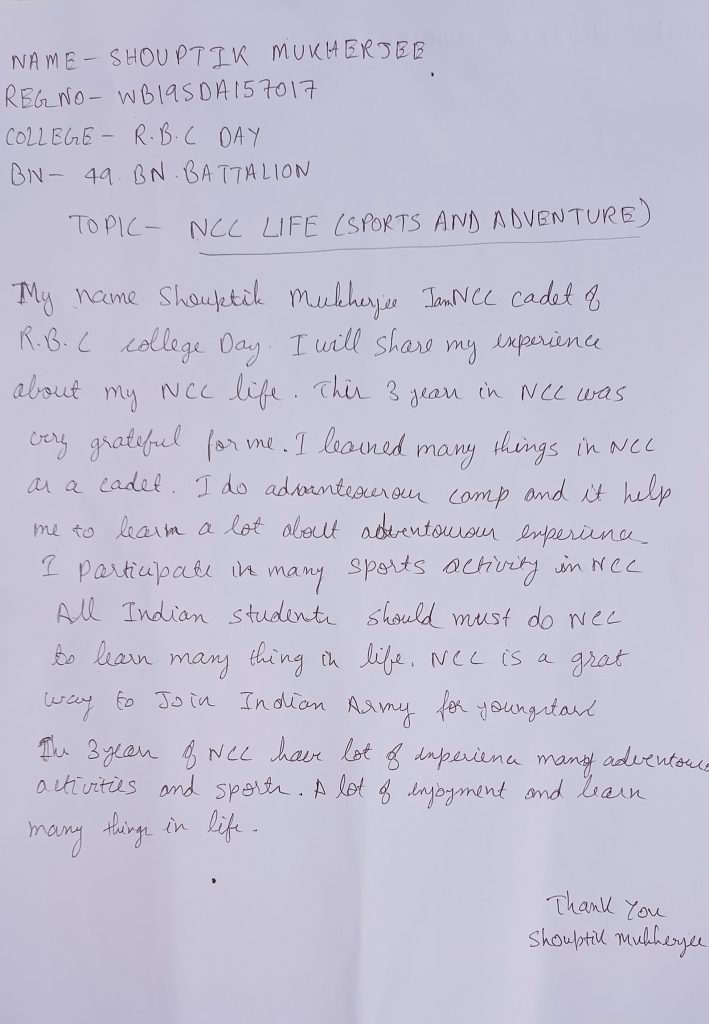 NAME - SHOUPTIK MUKHERJEE
REG NO - WB19SDA157017
COLLEGE - R.B.C DAY
BN - 49. BN. BATTALION
TOPIC - NCC LIFE (SPORTS AND ADVENTURE)
My name Shouptik Mukherjee I am NCC cadet of
R.B.C college Day. I will share my experience
about my NCC life. This 3 years in NCC was
very grateful for me. I learned many things in NCC
as a cadet. I do advanteourour camp and it help
me to learm a lot about adventourour experience
I participate in many sports activity in NCC
All Indian students should must do NCC
to learn many thing in life. NCC is a grat
way to Join Indian Army for youngstard
In 3 years of NCC have lot of experience many adventour
activities and sports. A lot of enjoyment and learn
many things in life.
Thank You
Shouptik Mukherjee